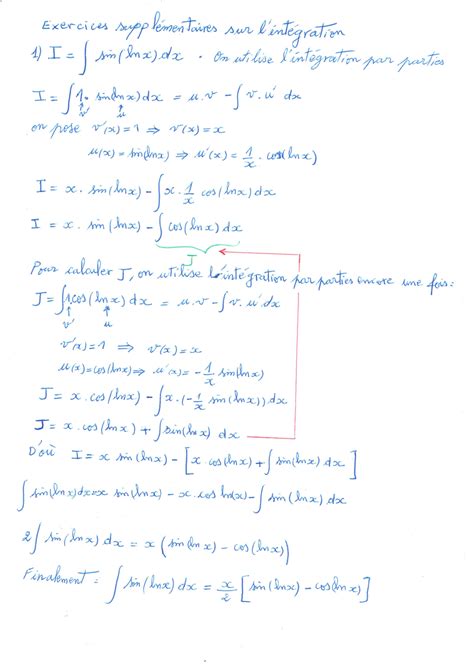 Exercices supplémentaires sur l'intégration
1) I = ∫ sin(ln x).dx . On utilise l'intégration par parties
I = ∫ 1. sin(ln x) dx = u.v - ∫ v. u' dx
v' u
on pose v'(x) = 1 ⇒ v(x) = x
u(x) = sin(ln x) ⇒ u'(x) = 1/x . cos(ln x)
I = x . sin(ln x) - ∫ x . 1/x cos(ln x) dx
I = x . sin(ln x) - ∫ cos(ln x) dx
J
Pour calculer J, on utilise l'intégration par parties encore une fois :
J = ∫ 1.cos(ln x) dx = u.v - ∫ v. u' dx
v' u
v'(x) = 1 ⇒ v(x) = x
u(x) = cos(ln x) ⇒ u'(x) = - 1/x sin(ln x)
J = x . cos(ln x) - ∫ x . (- 1/x sin(ln x)) dx
J = x . cos(ln x) + ∫ sin(ln x) dx
D'où I = x sin(ln x) - [x cos(ln x) + ∫ sin(ln x) dx]
∫ sin(ln x) dx = x sin(ln x) - x . cos ln(x) - ∫ sin(ln x) dx
2 ∫ sin(ln x) dx = x (sin(ln x) - cos(ln x))
Finalement : ∫ sin(ln x) dx = x/2 [sin(ln x) - cos(ln x)]